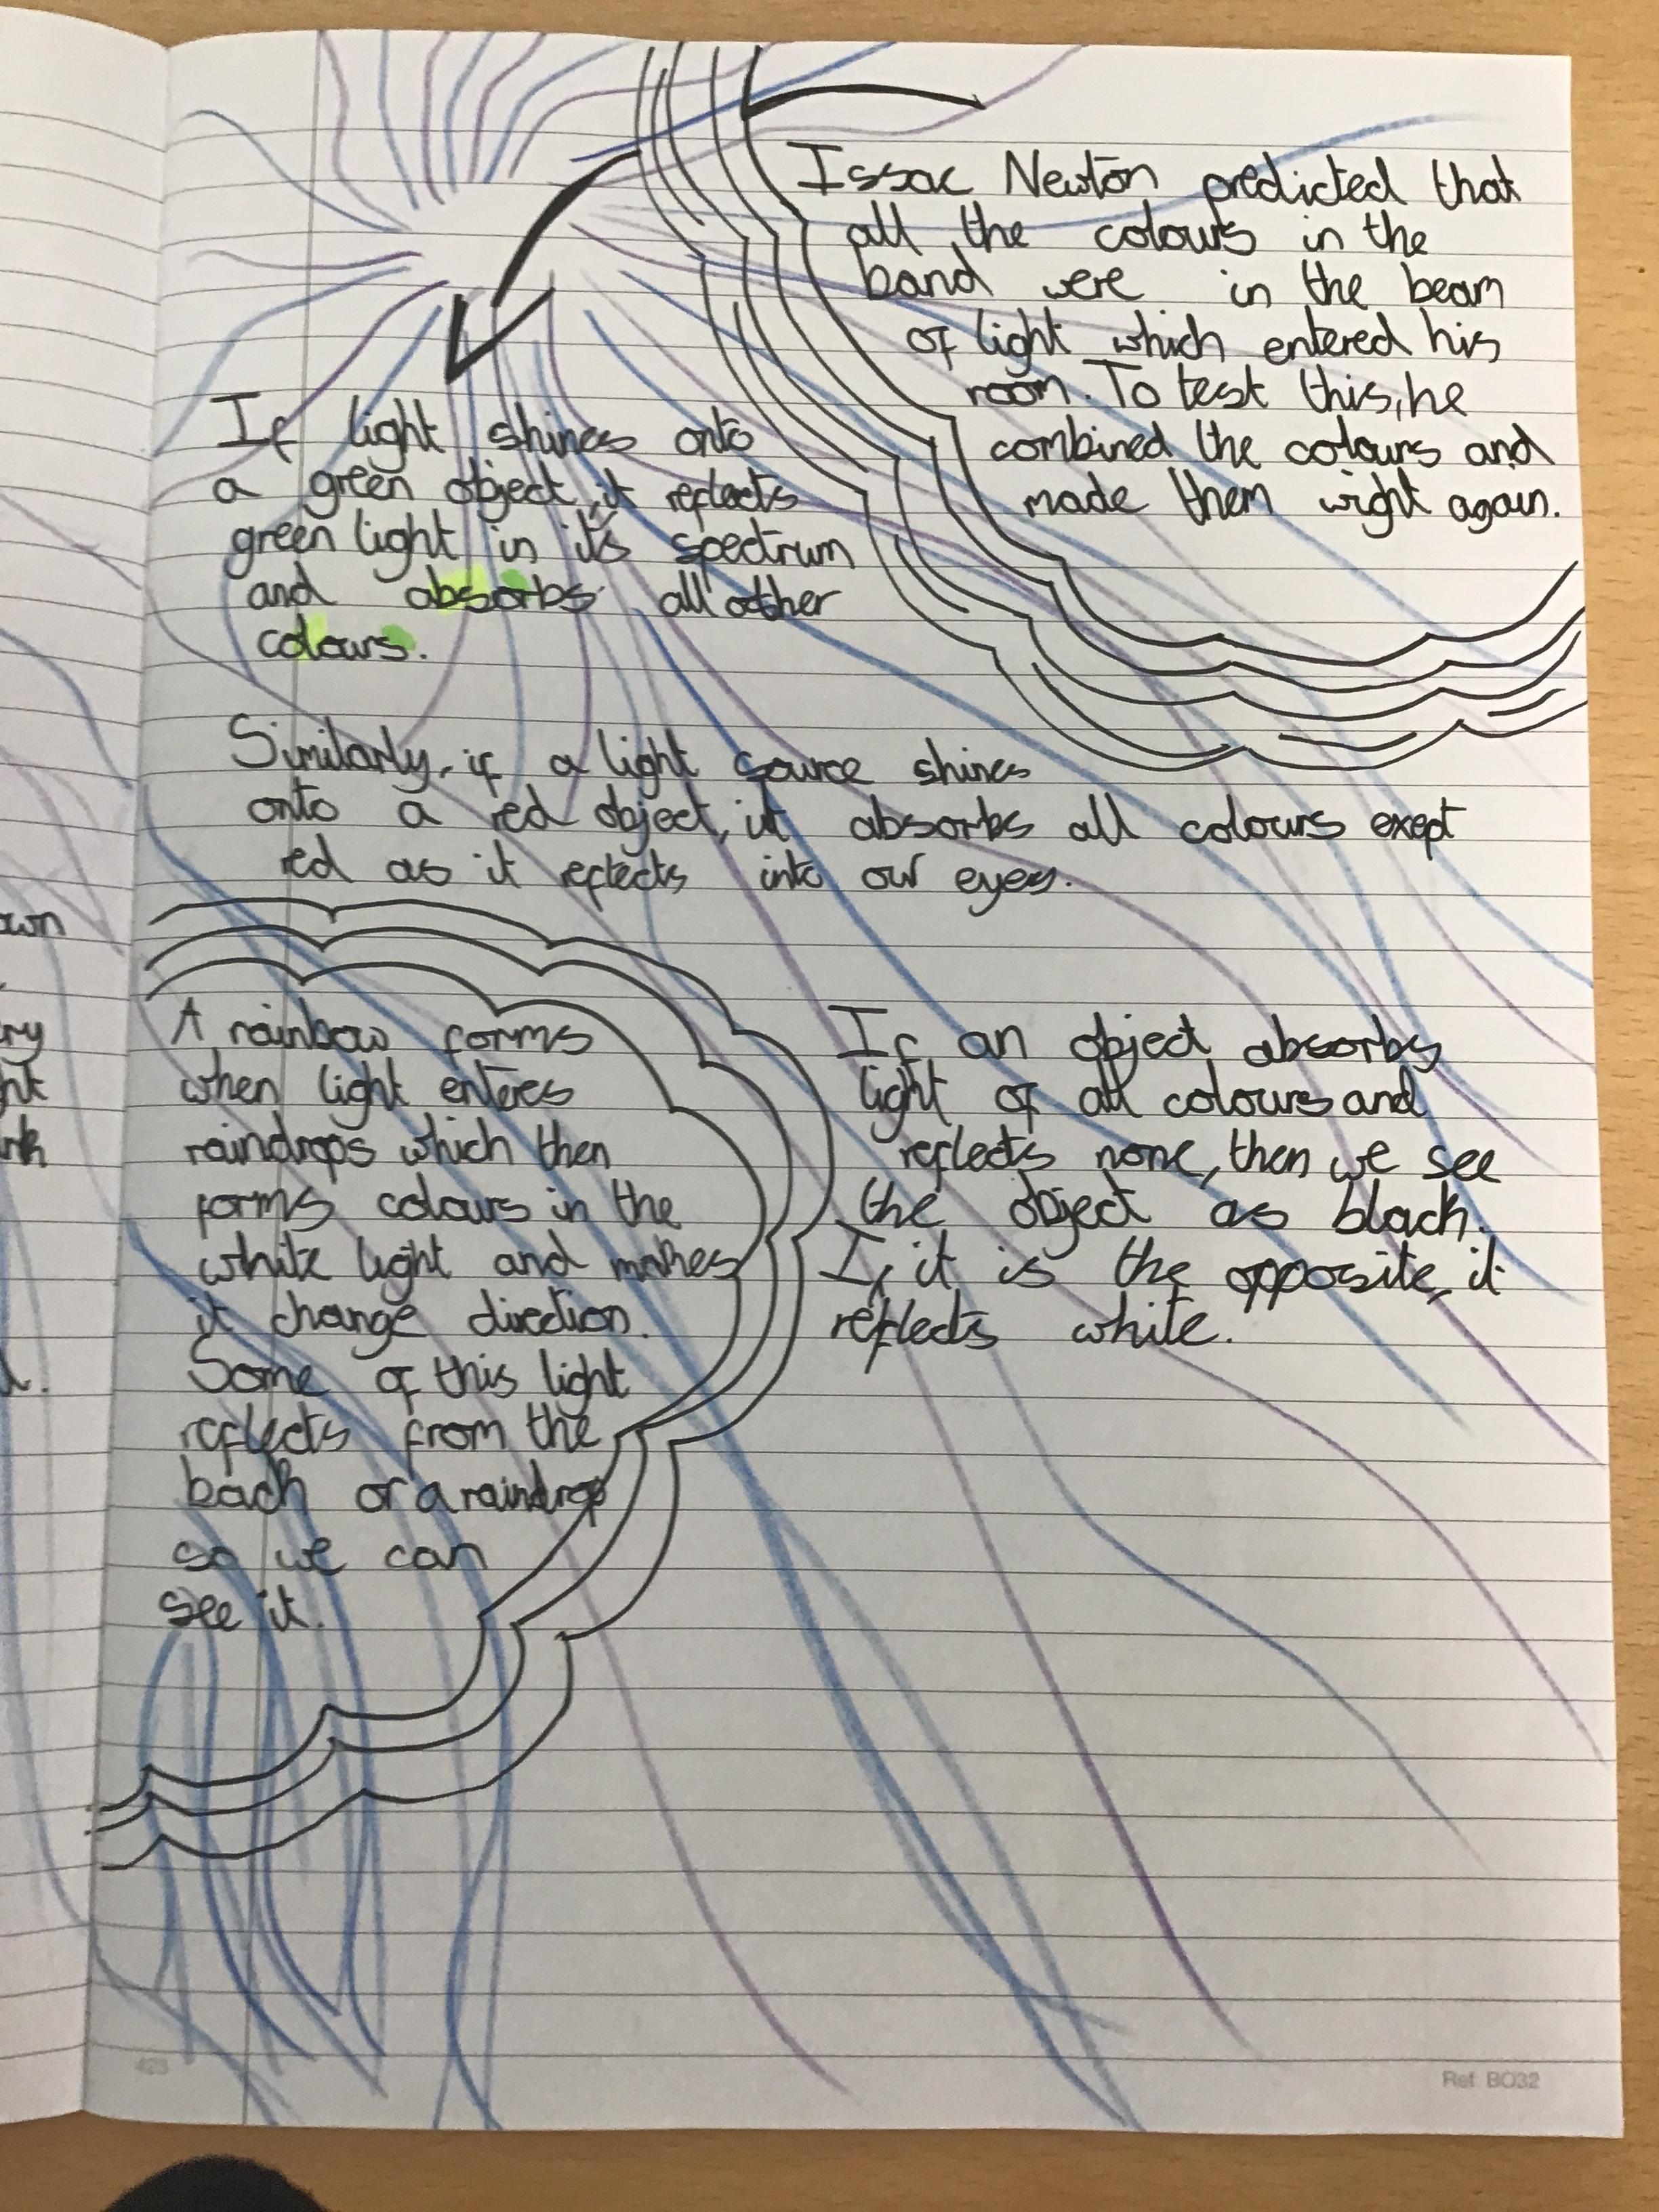 Issac Newton predicted that
all the colours in the
band were in the beam
of light which entered his
room. To test this, he
combined the colours and
made them wight again.
If light shines onto
a green object, it reflects
green light in it's spectrum
and absorbs all other
colours.
Similarly, if a light source shines
onto a red object, it absorbs all colours exept
red as it reflects into our eyes.
A rainbow forms
when light enteres
raindrops which then
forms colours in the
white light and makes
it change direction.
Some of this light
reflects from the
back of a raindrop
so we can
see it.
If an object absorbs
light of all colours and
reflects none, then we see
the object as black.
If it is the opposite, it
reflects white.
own
ry
ht
nk
425
Ref: BO32